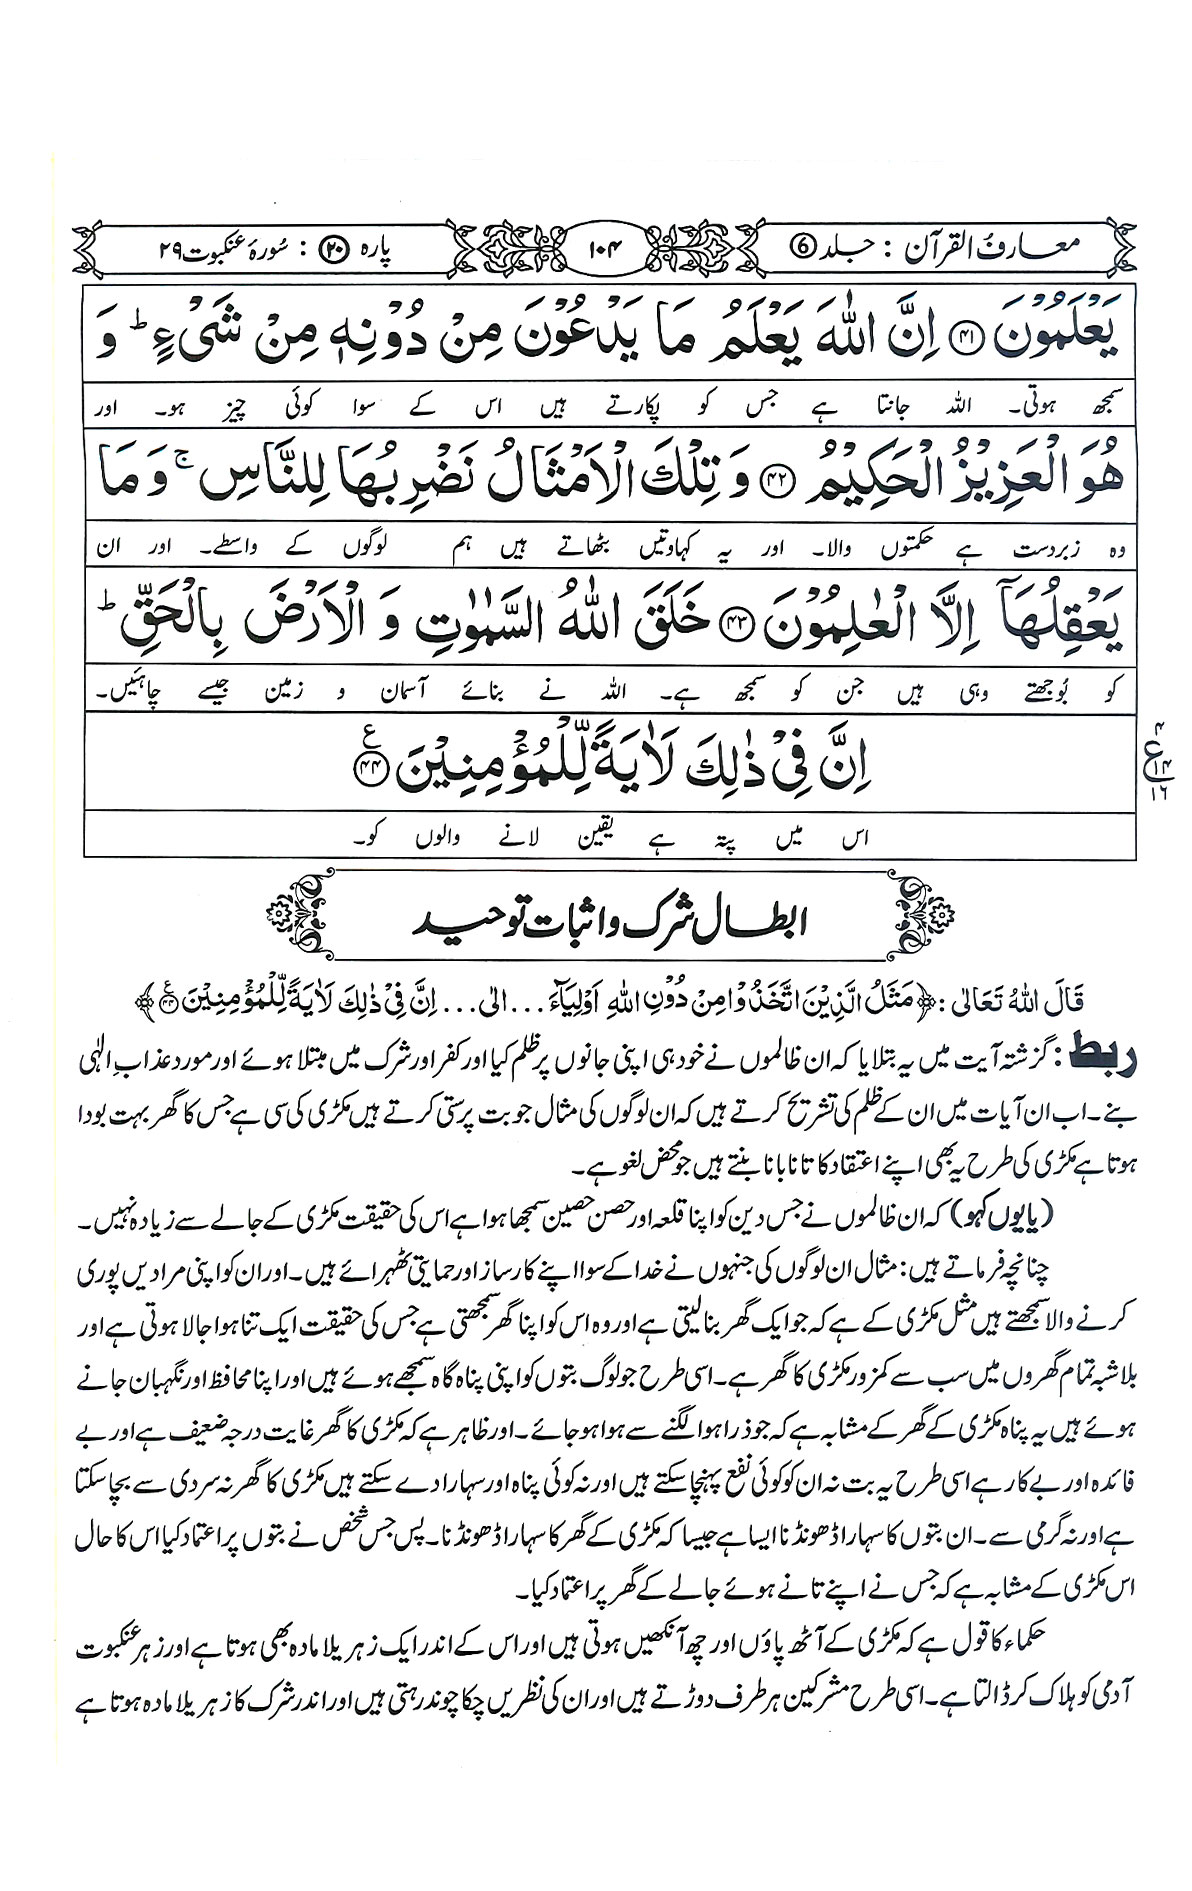 معارف القرآن : جلد ⑥
۱۰۴
پارہ ⑳ : سُورۂ عنکبوت ۲۹
يَعْلَمُوْنَ ﴿۴۱﴾ اِنَّ اللّٰهَ يَعْلَمُ مَا يَدْعُوْنَ مِنْ دُوْنِهٖ مِنْ شَىْءٍ ؕ وَ
سمجھ ہوتی۔ اللہ جانتا ہے جس کو پکارتے ہیں اس کے سوا کوئی چیز ہو۔ اور
هُوَ الْعَزِيْزُ الْحَكِيْمُ ﴿۴۲﴾ وَ تِلْكَ الْاَمْثَالُ نَضْرِبُهَا لِلنَّاسِ ۚ وَ مَا
وہ زبردست ہے حکمتوں والا۔ اور یہ کہاوتیں بٹھاتے ہیں ہم لوگوں کے واسطے۔ اور ان
يَعْقِلُهَاۤ اِلَّا الْعٰلِمُوْنَ ﴿۴۳﴾ خَلَقَ اللّٰهُ السَّمٰوٰتِ وَ الْاَرْضَ بِالْحَقِّ ؕ
کو بُوجھتے وہی ہیں جن کو سمجھ ہے۔ اللہ نے بنائے آسمان و زمین جیسے چاہئیں۔
اِنَّ فِىْ ذٰلِكَ لَاٰيَةً لِّلْمُؤْمِنِيْنَ ﴿۴۴﴾ ع
۴
ع ۱۴
۱۶
اس میں پتہ ہے یقین لانے والوں کو۔
ابطال شرک و اثبات توحید
قَالَ اللّٰهُ تَعَالٰى : ﴿مَثَلُ الَّذِيْنَ اتَّخَذُوْا مِنْ دُوْنِ اللّٰهِ اَوْلِيَآءَ ... الى ... اِنَّ فِىْ ذٰلِكَ لَاٰيَةً لِّلْمُؤْمِنِيْنَ ﴿۴۴﴾﴾
ربط : گزشتہ آیت میں یہ بتلایا کہ ان ظالموں نے خود ہی اپنی جانوں پر ظلم کیا اور کفر اور شرک میں مبتلا ہوئے اور مورد عذابِ الٰہی
بنے۔ اب ان آیات میں ان کے ظلم کی تشریح کرتے ہیں کہ ان لوگوں کی مثال جو بت پرستی کرتے ہیں مکڑی کی سی ہے جس کا گھر بہت بودا
ہوتا ہے مکڑی کی طرح یہ بھی اپنے اعتقاد کا تانا بانا بنتے ہیں جو محض لغو ہے۔
(یا یوں کہو) کہ ان ظالموں نے جس دین کو اپنا قلعہ اور حصن حصین سمجھا ہوا ہے اس کی حقیقت مکڑی کے جالے سے زیادہ نہیں۔
چنانچہ فرماتے ہیں: مثال ان لوگوں کی جنہوں نے خدا کے سوا اپنے کارساز اور حمایتی ٹھہرائے ہیں۔ اور ان کو اپنی مرادیں پوری
کرنے والا سمجھتے ہیں مثل مکڑی کے ہے کہ جو ایک گھر بنا لیتی ہے اور وہ اس کو اپنا گھر سمجھتی ہے جس کی حقیقت ایک تنا ہوا جالا ہوتی ہے اور
بلاشبہ تمام گھروں میں سب سے کمزور مکڑی کا گھر ہے۔ اسی طرح جو لوگ بتوں کو اپنی پناہ گاہ سمجھے ہوئے ہیں اور اپنا محافظ اور نگہبان جانے
ہوئے ہیں یہ پناہ مکڑی کے گھر کے مشابہ ہے کہ جو ذرا ہوا لگنے سے ہوا ہو جائے۔ اور ظاہر ہے کہ مکڑی کا گھر غایت درجہ ضعیف ہے اور بے
فائدہ اور بے کار ہے اسی طرح یہ بت نہ ان کو کوئی نفع پہنچا سکتے ہیں اور نہ کوئی پناہ اور سہارا دے سکتے ہیں مکڑی کا گھر نہ سردی سے بچا سکتا
ہے اور نہ گرمی سے۔ ان بتوں کا سہارا ڈھونڈنا ایسا ہے جیسا کہ مکڑی کے گھر کا سہارا ڈھونڈنا۔ پس جس شخص نے بتوں پر اعتماد کیا اس کا حال
اس مکڑی کے مشابہ ہے کہ جس نے اپنے تانے ہوئے جالے کے گھر پر اعتماد کیا۔
حکماء کا قول ہے کہ مکڑی کے آٹھ پاؤں اور چھ آنکھیں ہوتی ہیں اور اس کے اندر ایک زہریلا مادہ بھی ہوتا ہے اور زہر عنکبوت
آدمی کو ہلاک کر ڈالتا ہے۔ اسی طرح مشرکین ہر طرف دوڑتے ہیں اور ان کی نظریں چکا چوند رہتی ہیں اور اندر شرک کا زہریلا مادہ ہوتا ہے